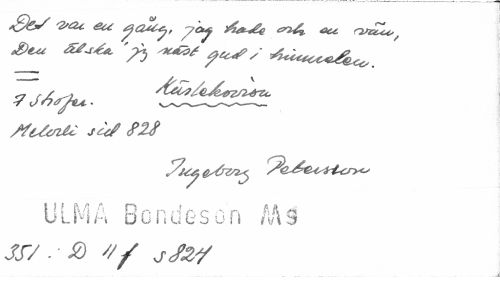 Det var en gång, jag hade och en vän,
Den älska' jg näst gud i himmelen.
7 strofer. Kärleksvisa
Melodi sid 828
Ingeborg Petersson
ULMA Bondeson Ms
351 : D 11 f s 824